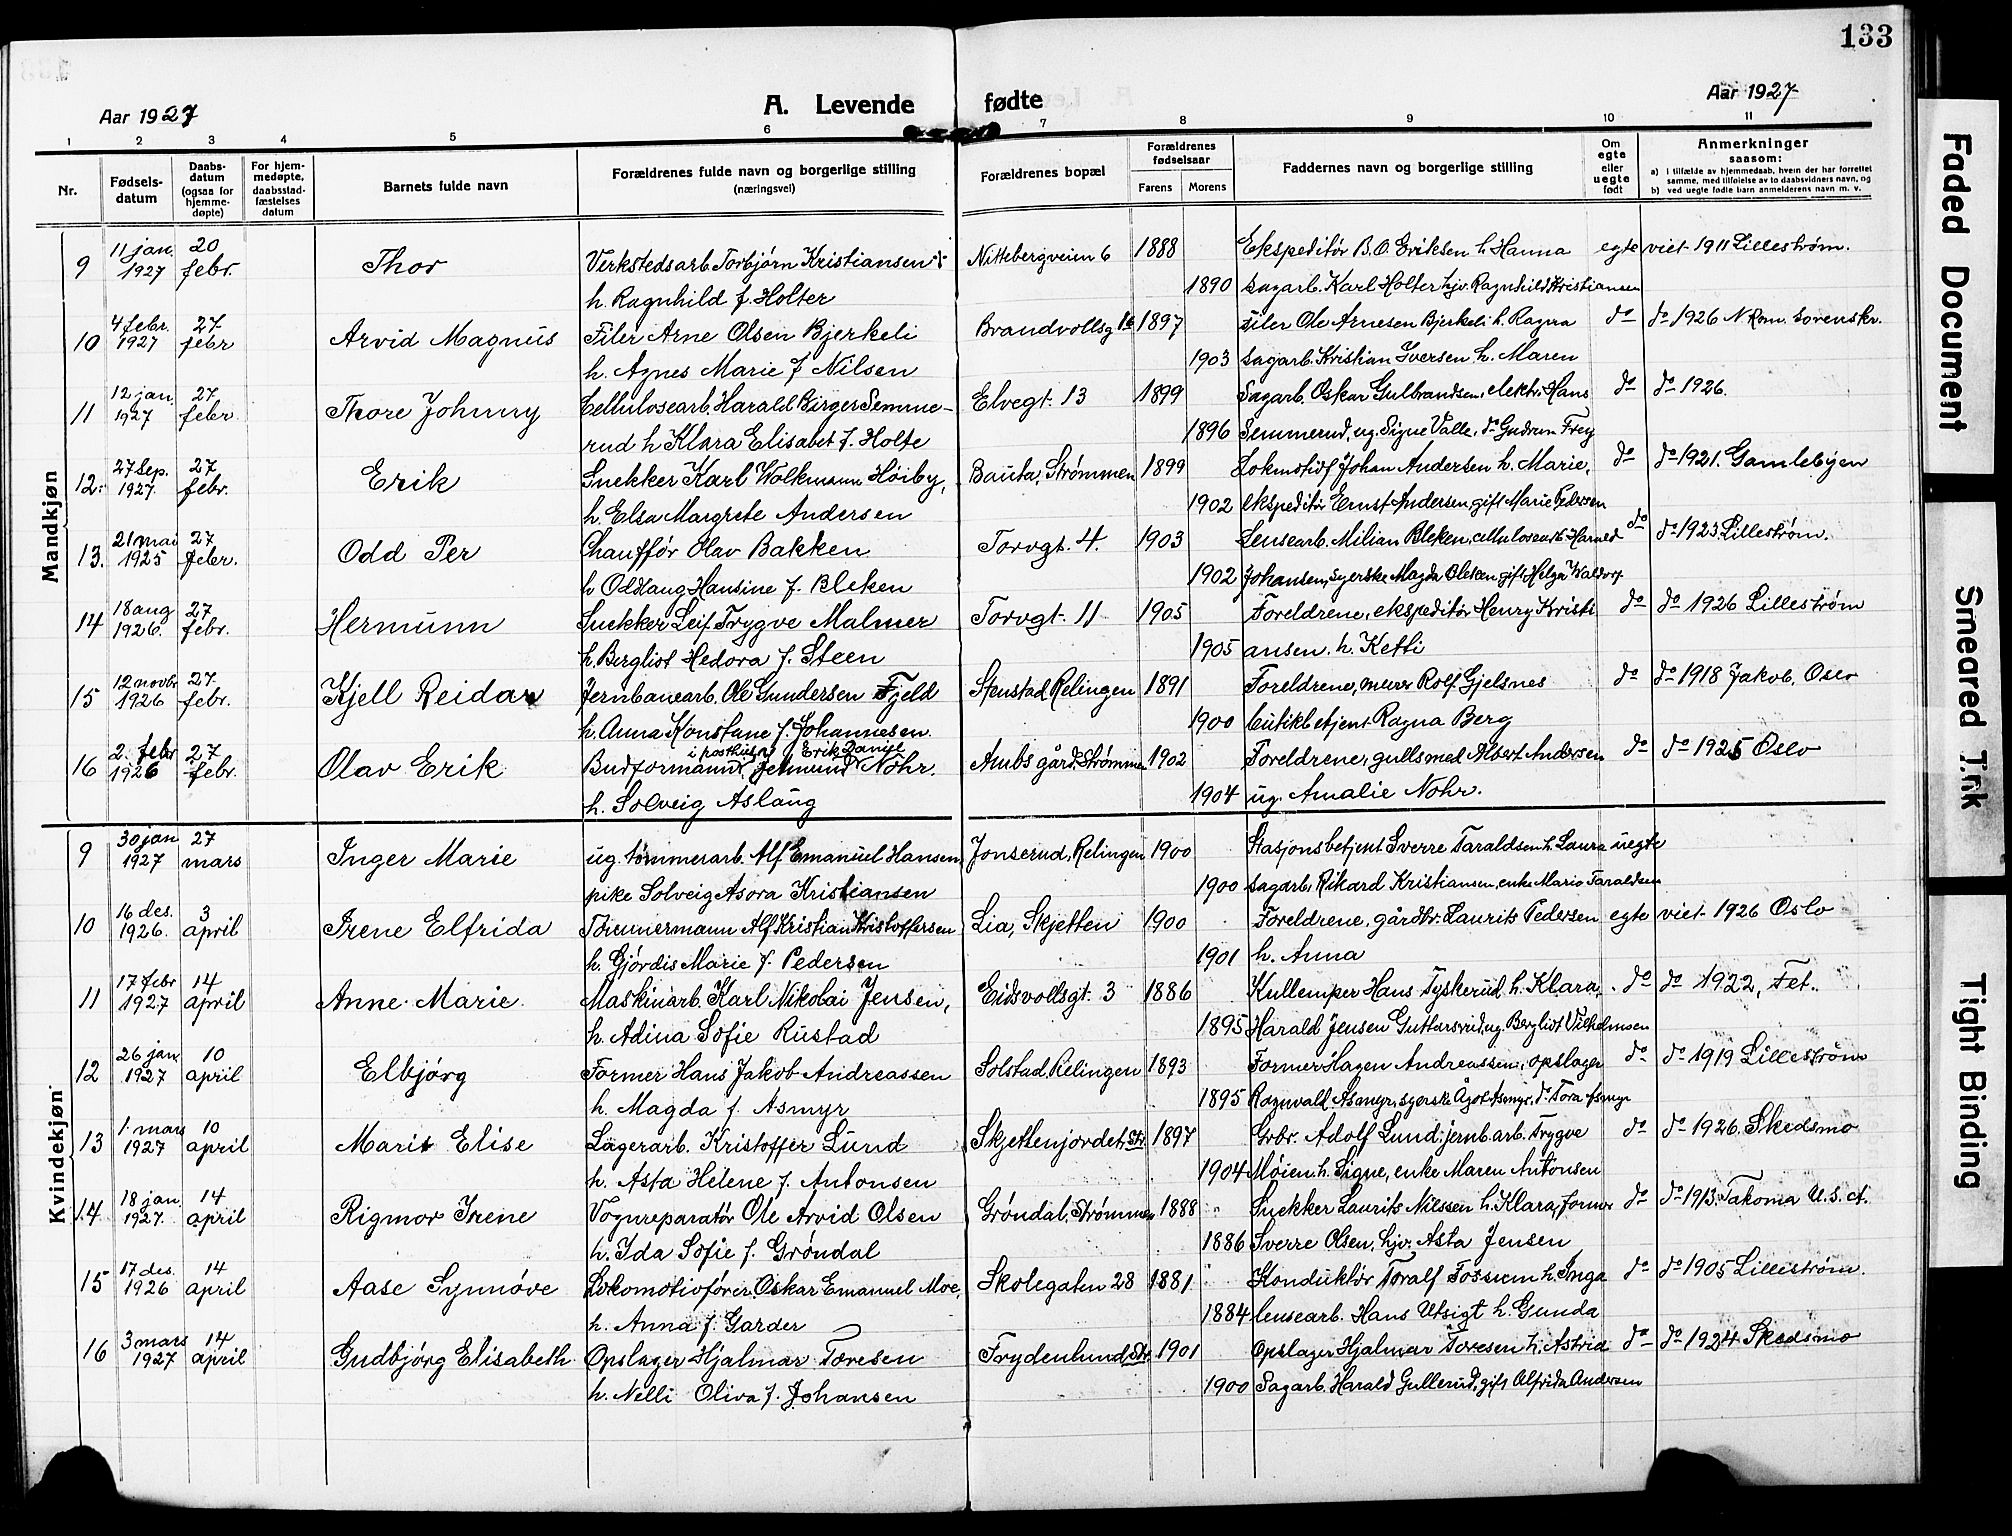 133
Aar 1927
A. Levende fødte
Aar 1927
1 2 3 4 5 6 7 8 9 10 11
Nr.
Fødsels-
datum
Daabs-
datum
(ogsaa for
hjemme-
døpte)
For hjem-
medøpte,
daabsstad-
fæstelses
datum
Barnets fulde navn
Forældrenes fulde navn og borgerlige stilling
(næringsvei)
Forældrenes bopæl
Forældrenes
fødselsaar
Farens Morens
Faddernes navn og borgerlige stilling
Om
egte
eller
uegte
født
Anmerkninger
saasom:
a) i tilfælde av hjemmedaab, hvem der har forrettet
samme, med tilføielse av to daabsvidners navn, og
b) ved uegte fødte barn anmelderens navn m. v.
Mandkjøn
9 11 jan. 1927 20 febr. Thor Verkstedsarb. Torbjørn Kristiansen Nittebergveien 6 1888 Ekspeditør B. O. Eriksen h. Hanna egte viet 1911 Lillestrøm.
h. Ragnhild f. Holter 1890 sagarb. Karl Holter hjv. Ragnhild Kristiansen
10 4 febr. 1927 27 febr Arvid Magnus Filer Arne Olsen Bjerkeli Brandvollsg 16 1897 filer Ole Arnesen Bjerkeli h. Ragna do do 1926 N Rom. sorenskr.
h. Agnes Marie f Nilsen 1903 sagarb. Kristian Iversen h. Maren
11 12 jan. 1927 27 febr. Thore Johnny Cellulosearb. Harald Birger Semme- Elvegt. 13 1899 Sagarb. Oskar Gulbrandsen, elektr. Hans do do 1926.
rud h Klara Elisabet f. Holte 1896 Semmerud, ug. Signe Valle, do Gudrun Frey
12. 27 Sep. 1927. 27 febr. Erik Snekker Karl Wolkmann Høiby, Bauta, Strømmen 1899 Lokmotivf Johan Andersen h. Marie, do do 1921. Gamlebyen
h. Elsa Margrete Andersen 1902 ekspeditør Ernst Andersen, gift Marie Pedersen
13. 21 mai 1925 27 febr. Odd Per Chauffør Olav Bakken Torvgt. 4. 1903 Lensearb. Milian Bleken, cellulosearb. Harald do do 1923 Lillestrøm.
h Oddlaug Hansine f. Bleken 1902 Johansen, syerske Magda Bleken gift Helga Waldorf
14 18 aug 1926. 27 febr. Hermunn Snekker Leif Trygve Malmer Torvgt. 11 1905 Foreldrene, ekspeditør Henry Kristi do do 1926 Lillestrøm
h. Bergliot Hedora f. Steen 1905 ansen. h. Ketti
15 12 novbr 1926 27 febr. Kjell Reidar Jernbanearb. Ole Gundersen Fjeld Stenstad, Relingen 1891 Foreldrene, murer Rolf Gjelsnes do do 1918 Jakob, Oslo
h. Anna Konstane f. Johannesen. 1900 butikbetjent Ragna Berg
16 2. febr 1926 27 febr. Olav Erik Budformann i posthuset Erik Daniel Jehmund Nohr. Ambs gård, Strømmen 1902 Foreldrene, gullsmed Albert Andersen do do 1925 Oslo
h. Solveig Aslaug 1904 ug. Amalie Nohr.
Kvindekjøn
9 30 jan 1927 27 mars Inger Marie ug. tømmerarb. Alf Emanuel Hansen Jonserud, Relingen 1900 Stasjonsbetjent Sverre Taraldsen h. Laura uegte
pike Solveig Asora Kristiansen 1900 sagarb. Rikard Kristiansen, enke Marie Taraldsen
10 16 des. 1926. 3 april Irene Elfrida Tømmermann Alf Kristian Kristoffersen Lia, Skjetten 1900 Foreldrene, gårdbr. Laurits Pedersen egte viet 1926 Oslo
h. Gjørdis Marie f. Pedersen 1901 h. Anna
11 17 febr 1927 14 april Anne-Marie. Maskinarb. Karl Nikolai Jensen, Eidsvollsgt. 3 1886 Kullemper Hans Tyskerud, h. Klara, do do 1922, Fet.
h. Adina Sofie Rustad 1895 Harald Jensen Guttarsrud, ug. Bergliot Vilhelmsen
12 26 jan. 1927 10 april Elbjørg Former Hans Jakob Andreassen Solstad, Relingen 1893 Former Hagen Andreassen, opslager do do 1919 Lillestrøm
h. Magda f. Asmyr 1895 Ragnvald Asmyr, syerske Ågot Asmyr, do Tora Asmyr
13 1. mars 1927 10 april Marit Elise Lagerarb. Kristoffer Lund Skjettenjordet, Str. 1897 Grbr. Adolf Lund, jernb.arb. Trygve do do 1926. Skedsmo
h. Asta Helene f. Antonsen 1904 Møien h. Signe, enke Maren Antonsen
14 18 jan. 1927. 14 april Rigmor Irene Vognreparatør Ole Arvid Olsen Grøndal, Strømmen 1888 Snekker Laurits Nilssen h. Klara, former do do 1913 Takoma U.S.A.
h. Ida Sofie f. Grøndal 1886 Sverre Olsen, hjv. Asta Jensen
15 17 des. 1926 14 april Aase Synnøve Lokomotivfører. Oskar Emanuel Moe, Skolegaten 28 1881. Konduktør Toralf Fossum h. Inga do do 1905 Lillestrøm.
h. Anna f. Garder 1884 lensearb. Hans Utsigt h. Gunda
16 3 mars 1927 14 april Gudbjørg Elisabeth Opslager Hjalmar Toresen Frydenlund, Str. 1901 Opslager Hjalmar Toresen h. Astrid do do 1924 Skedsmo
h. Nelli Oliva f. Johansen 1900 Sagarb. Harald Gullerud, gift Alfrida Andersen
Faded Document
Smeared Ink
Tight Binding